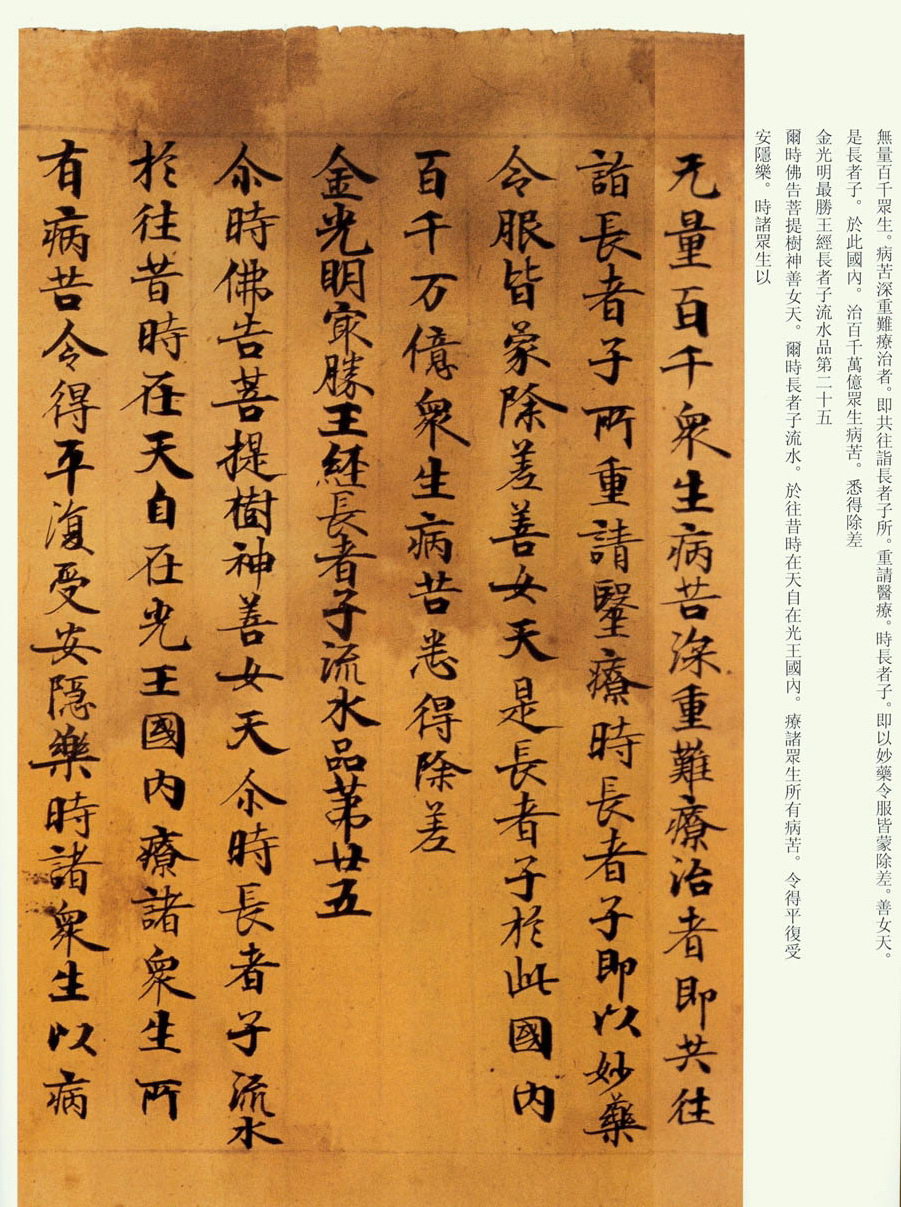 無量百千眾生。病苦深重難療治者。即共往詣長者子所。重請醫療。時長者子。即以妙藥令服皆蒙除差。善女天。
是長者子。於此國內。治百千萬億眾生病苦。悉得除差
金光明最勝王經長者子流水品第二十五
爾時佛告菩提樹神善女天。爾時長者子流水。於往昔時在天自在光王國內。療諸眾生所有病苦。令得平復受
安隱樂。時諸眾生以
无量百千衆生病苦深重難療治者即共往
詣長者子所重請毉療時長者子即以妙藥
令服皆蒙除差善女天是長者子於此國內
百千万億衆生病苦悉得除差
金光明㝡勝王經長者子流水品苐廿五
尒時佛告菩提樹神善女天尒時長者子流水
於往昔時在天自在光王國內療諸衆生所
有病苦令得平復受安隱樂時諸衆生以病